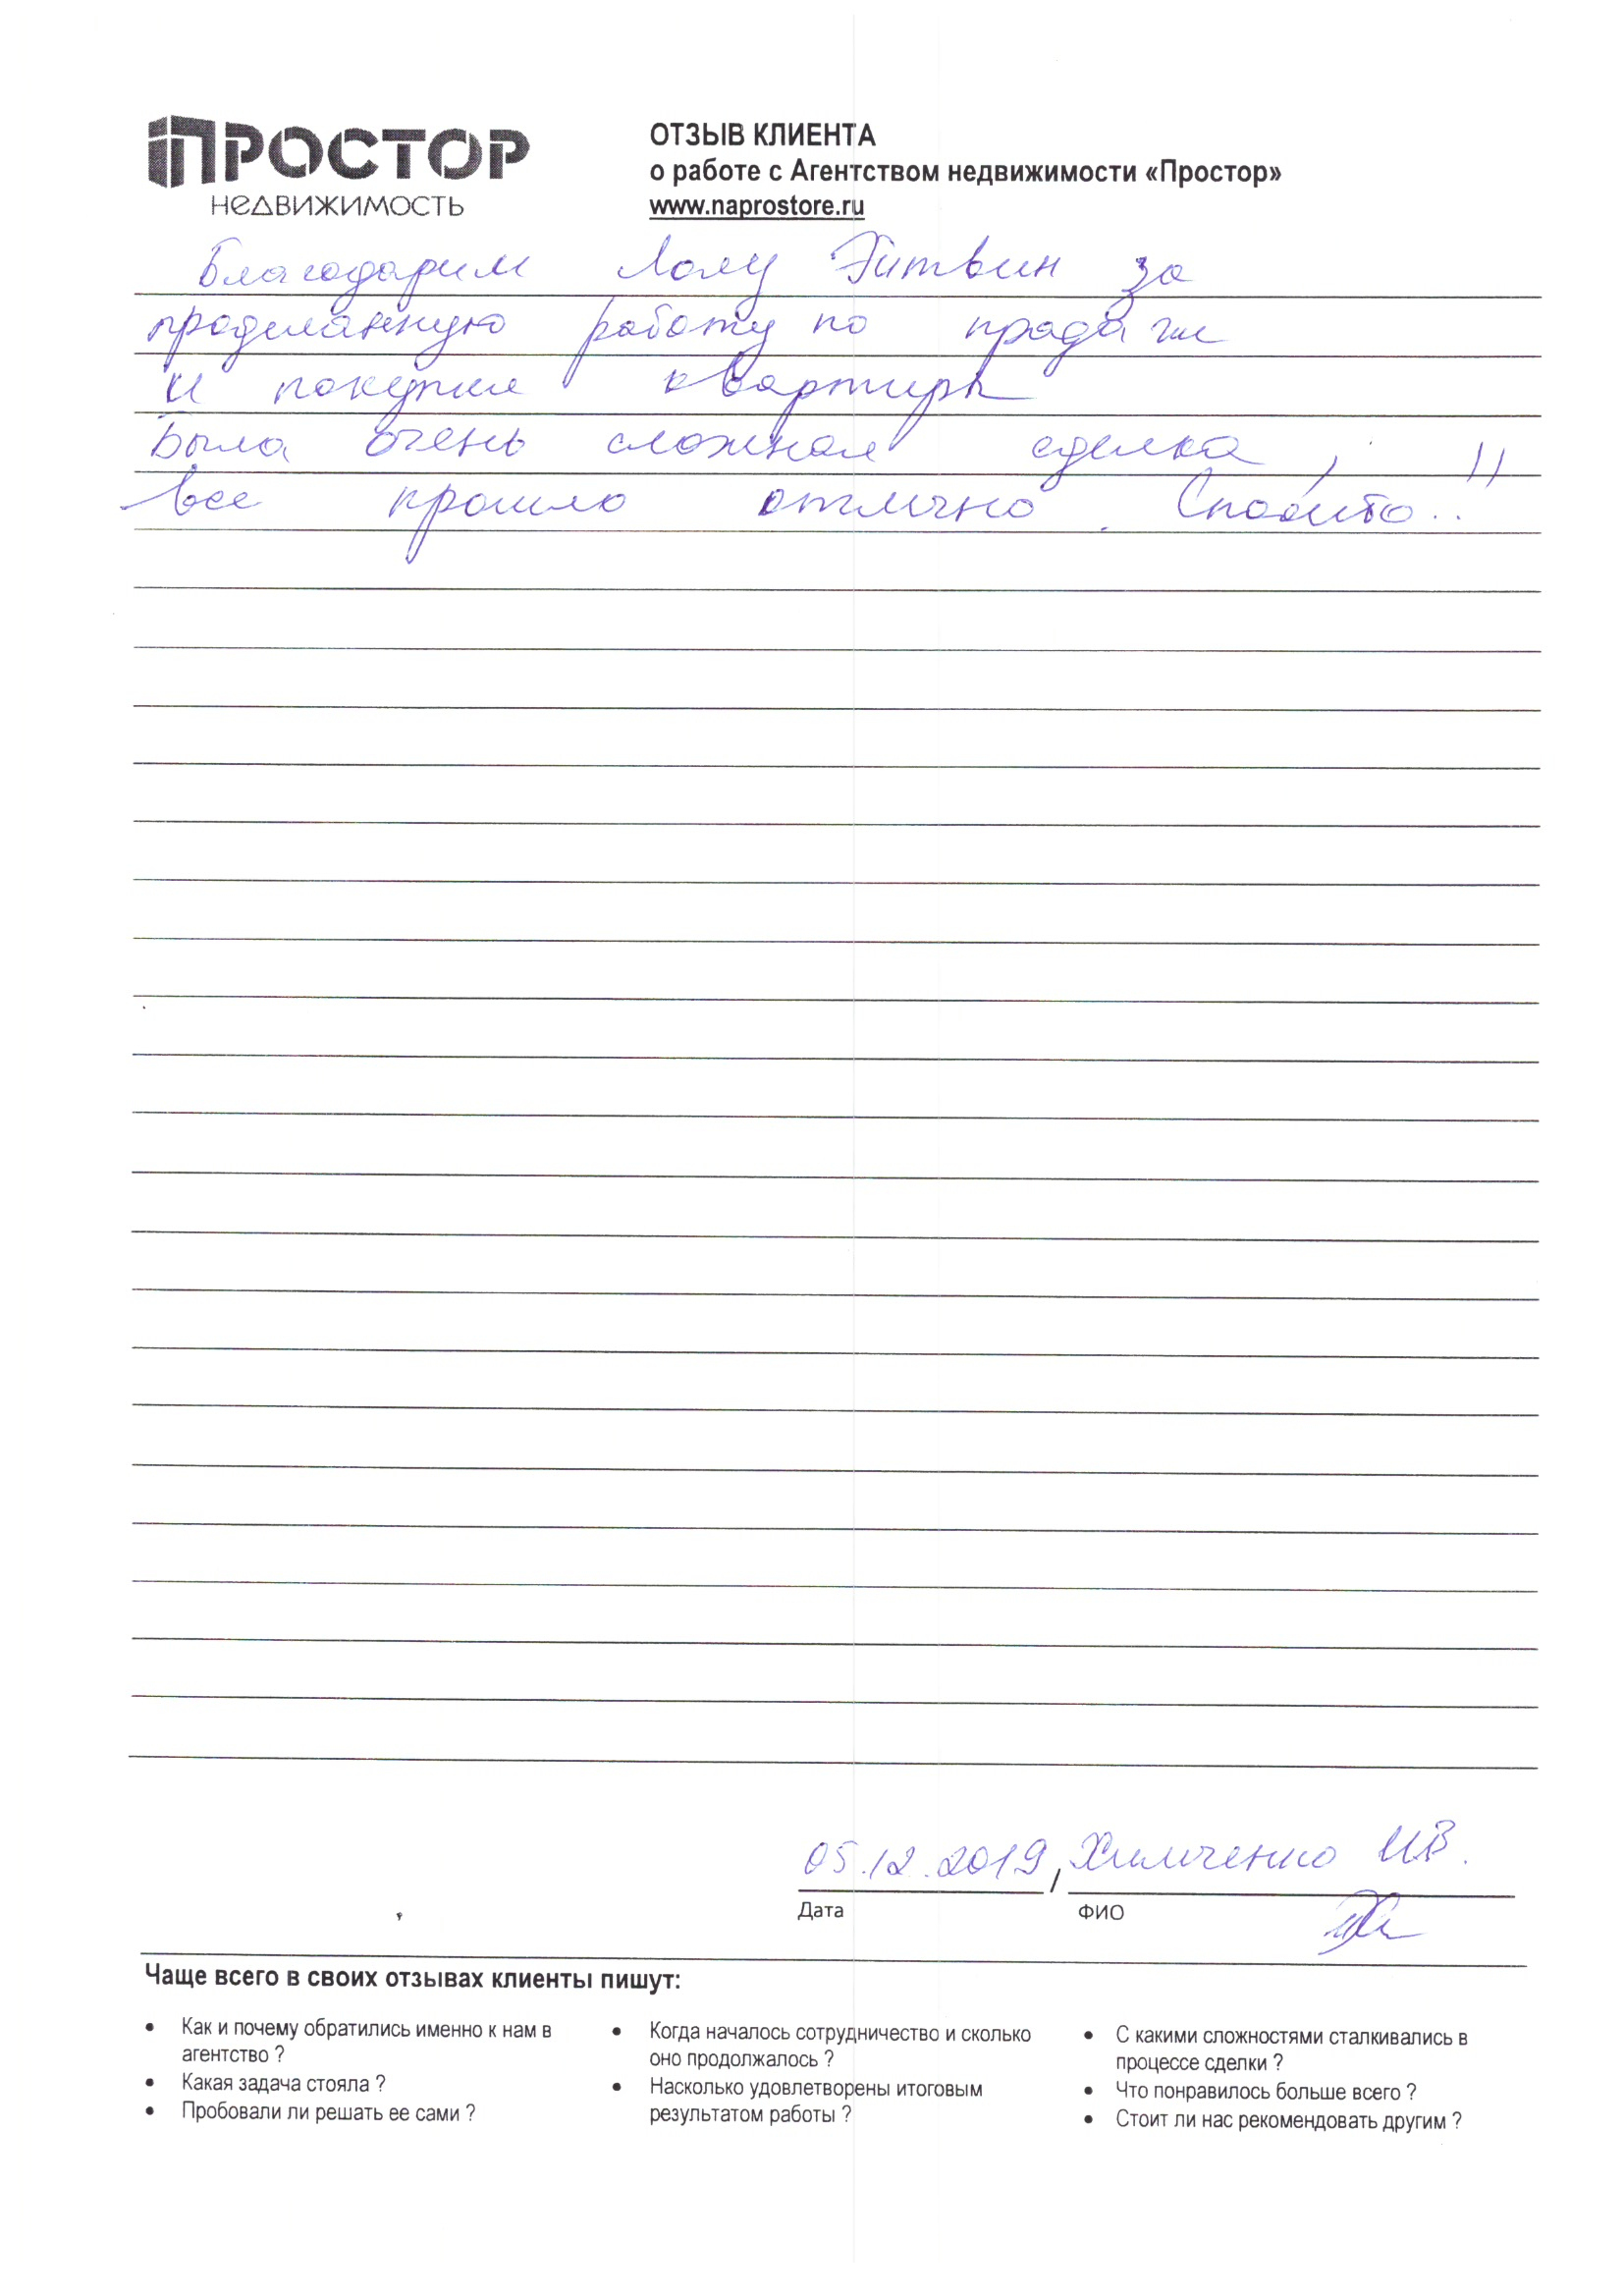 ПРОСТОР
НЕДВИЖИМОСТЬ
ОТЗЫВ КЛИЕНТА
о работе с Агентством недвижимости «Простор»
www.naprostore.ru
Благодарим за
проделанную работу по продажи
и покупке квартиры
Была очень сложная сделка,
все прошло отлично. Спасибо!!
05.12.2019 / Химченко И.В.
Дата ФИО
Чаще всего в своих отзывах клиенты пишут:
• Как и почему обратились именно к нам в
агентство ?
• Какая задача стояла ?
• Пробовали ли решать ее сами ?
• Когда началось сотрудничество и сколько
оно продолжалось ?
• Насколько удовлетворены итоговым
результатом работы ?
• С какими сложностями сталкивались в
процессе сделки ?
• Что понравилось больше всего ?
• Стоит ли нас рекомендовать другим ?